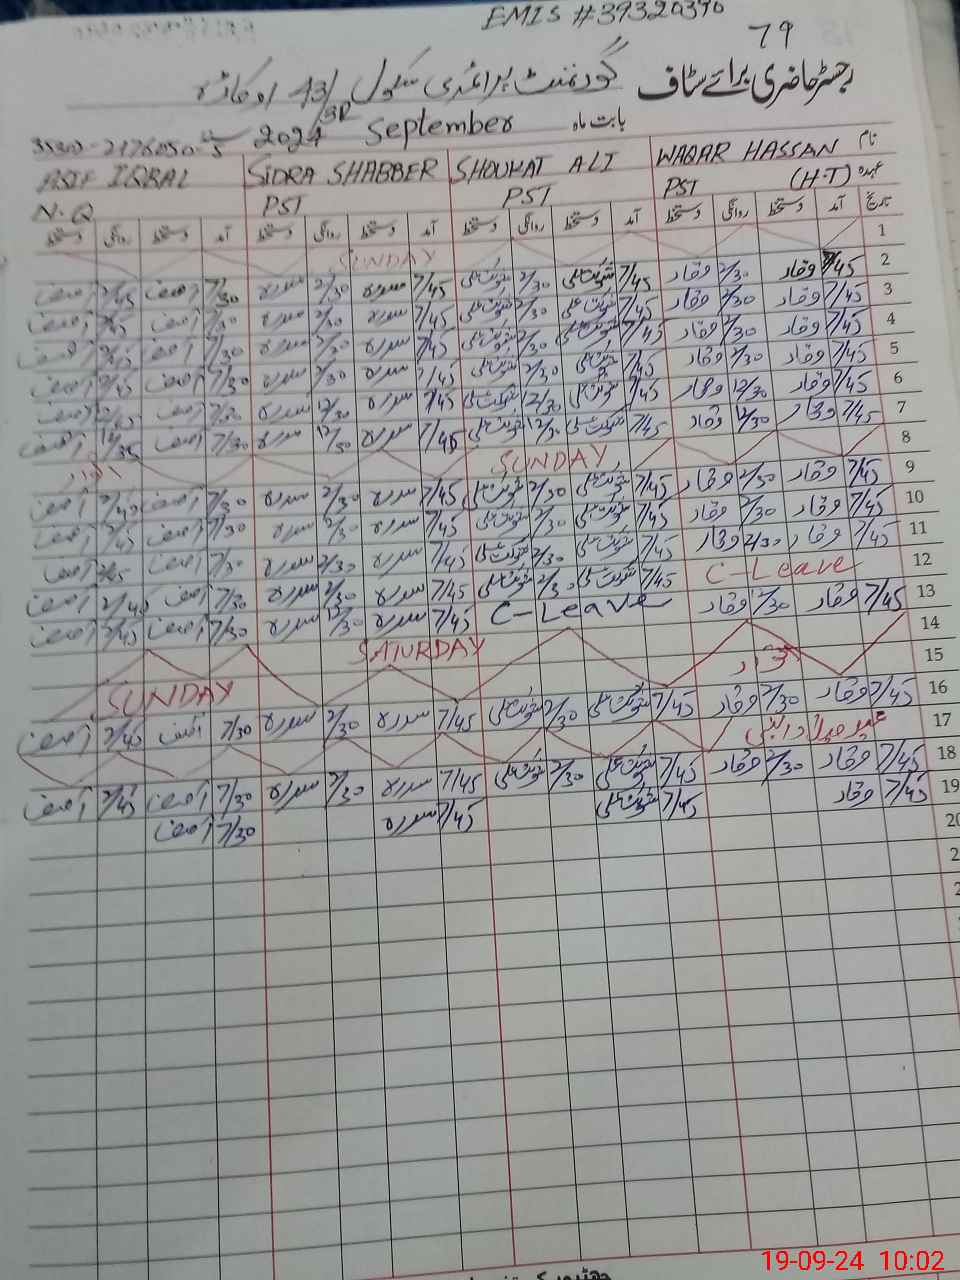 EMIS #39320370
79
رجسٹر حاضری برائے سٹاف گورنمنٹ پرائمری سکول 43/3R اوکاڑہ
بابت ماہ September 2024
نام WAQAR HASSAN SHOUKAT ALI SIDRA SHABBER ASIF IQBAL
عہدہ (H.T) PST PST PST N.Q
تاریخ آمد دستخط روانگی دستخط آمد دستخط روانگی دستخط آمد دستخط روانگی دستخط آمد دستخط روانگی دستخط
1 SUNDAY
2 7/45 وقار 2/30 وقار 7/45 شوکت علی 2/30 شوکت علی 7/45 سدرہ 2/30 سدرہ 7/30 آصف 2/45 آصف
3 7/45 وقار 2/30 وقار 7/45 شوکت علی 2/30 شوکت علی 7/45 سدرہ 2/30 سدرہ 7/30 آصف 2/45 آصف
4 7/45 وقار 2/30 وقار 7/45 شوکت علی 2/30 شوکت علی 7/45 سدرہ 2/30 سدرہ 7/30 آصف 2/45 آصف
5 7/45 وقار 2/30 وقار 7/45 شوکت علی 2/30 شوکت علی 7/45 سدرہ 2/30 سدرہ 7/30 آصف 2/45 آصف
6 7/45 وقار 12/30 وقار 7/45 شوکت علی 12/30 شوکت علی 7/45 سدرہ 12/30 سدرہ 7/30 آصف آصف
7 7/45 وقار 12/30 وقار 7/45 شوکت علی 12/30 شوکت علی 7/45 سدرہ 12/30 سدرہ 7/30 آصف آصف
8 SUNDAY اتوار
9 7/45 وقار 2/30 وقار 7/45 شوکت علی 2/30 شوکت علی 7/45 سدرہ 2/30 سدرہ 7/30 آصف 2/45 آصف
10 7/45 وقار 2/30 وقار 7/45 شوکت علی 2/30 شوکت علی 7/45 سدرہ 2/30 سدرہ 7/30 آصف 2/45 آصف
11 7/45 وقار 2/30 وقار 7/45 شوکت علی 2/30 شوکت علی 7/45 سدرہ 2/30 سدرہ 7/30 آصف 2/45 آصف
12 C-Leave 7/45 شوکت علی 2/30 شوکت علی 7/45 سدرہ 2/30 سدرہ 7/30 آصف 2/45 آصف
13 7/45 وقار 12/30 وقار C-Leave 7/45 سدرہ 12/30 سدرہ 7/30 آصف 2/45 آصف
14 SATURDAY
15 اتوار SUNDAY
16 7/45 وقار 2/30 وقار 7/45 شوکت علی 2/30 شوکت علی 7/45 سدرہ 2/30 سدرہ 7/30 آصف 2/45 آصف
17 عید میلاد النبی
18 7/45 وقار 2/30 وقار 7/45 شوکت علی 2/30 شوکت علی 7/45 سدرہ 2/30 سدرہ 7/30 آصف 2/45 آصف
19 7/45 وقار 7/45 شوکت علی 7/45 سدرہ 7/30 آصف
20
2
2
19-09-24 10:02